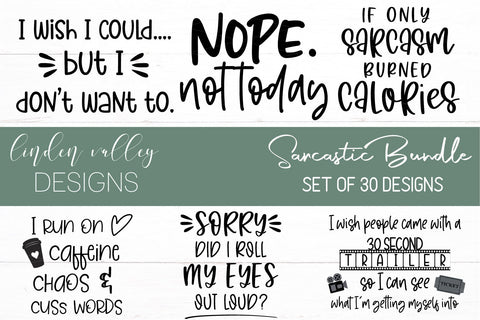 I wish I could....
but I
don't want to.
NOPE.
not today
IF ONLY
SARCASM
BURNED
CALORIES
linden valley
DESIGNS
Sarcastic Bundle
SET OF 30 DESIGNS
I RUN ON
caffeine
CHAOS &
CUSS WORDS
SORRY
DID I ROLL
MY EYES
OUT LOUD?
I wish people came with a
30 SECOND
TRAILER
so I can see
what I'm getting myself into
TICKET